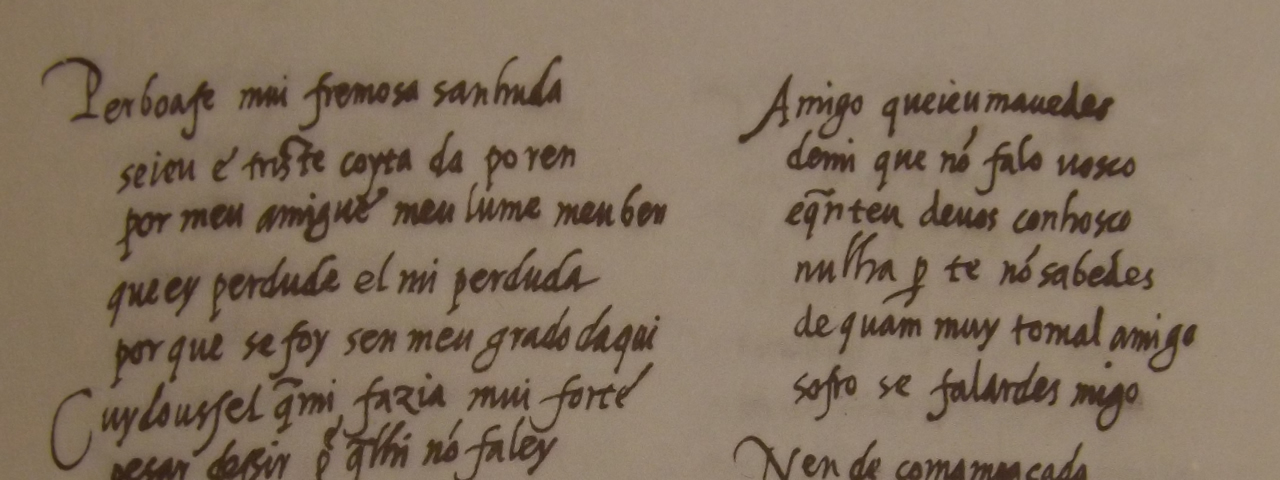 Per boafe mui fremosa sanhuda
seieu é triste coyta da poren
por meu amigué meu lume meu ben
que ey perdude el mi perduda
por que se foy sen meu grado daqui
Cuydousſel q̃mi fazia mui forté
pesar deſſir p̃ q̃lhi nó faley
Amigo queieu mauedes
demi que nó falo uosco
eq̃nteu deuos conhosco
nulha p̱ te nó sabedes
de quam muy tomal amigo
sofro se falardes migo
Nen de comameaçada